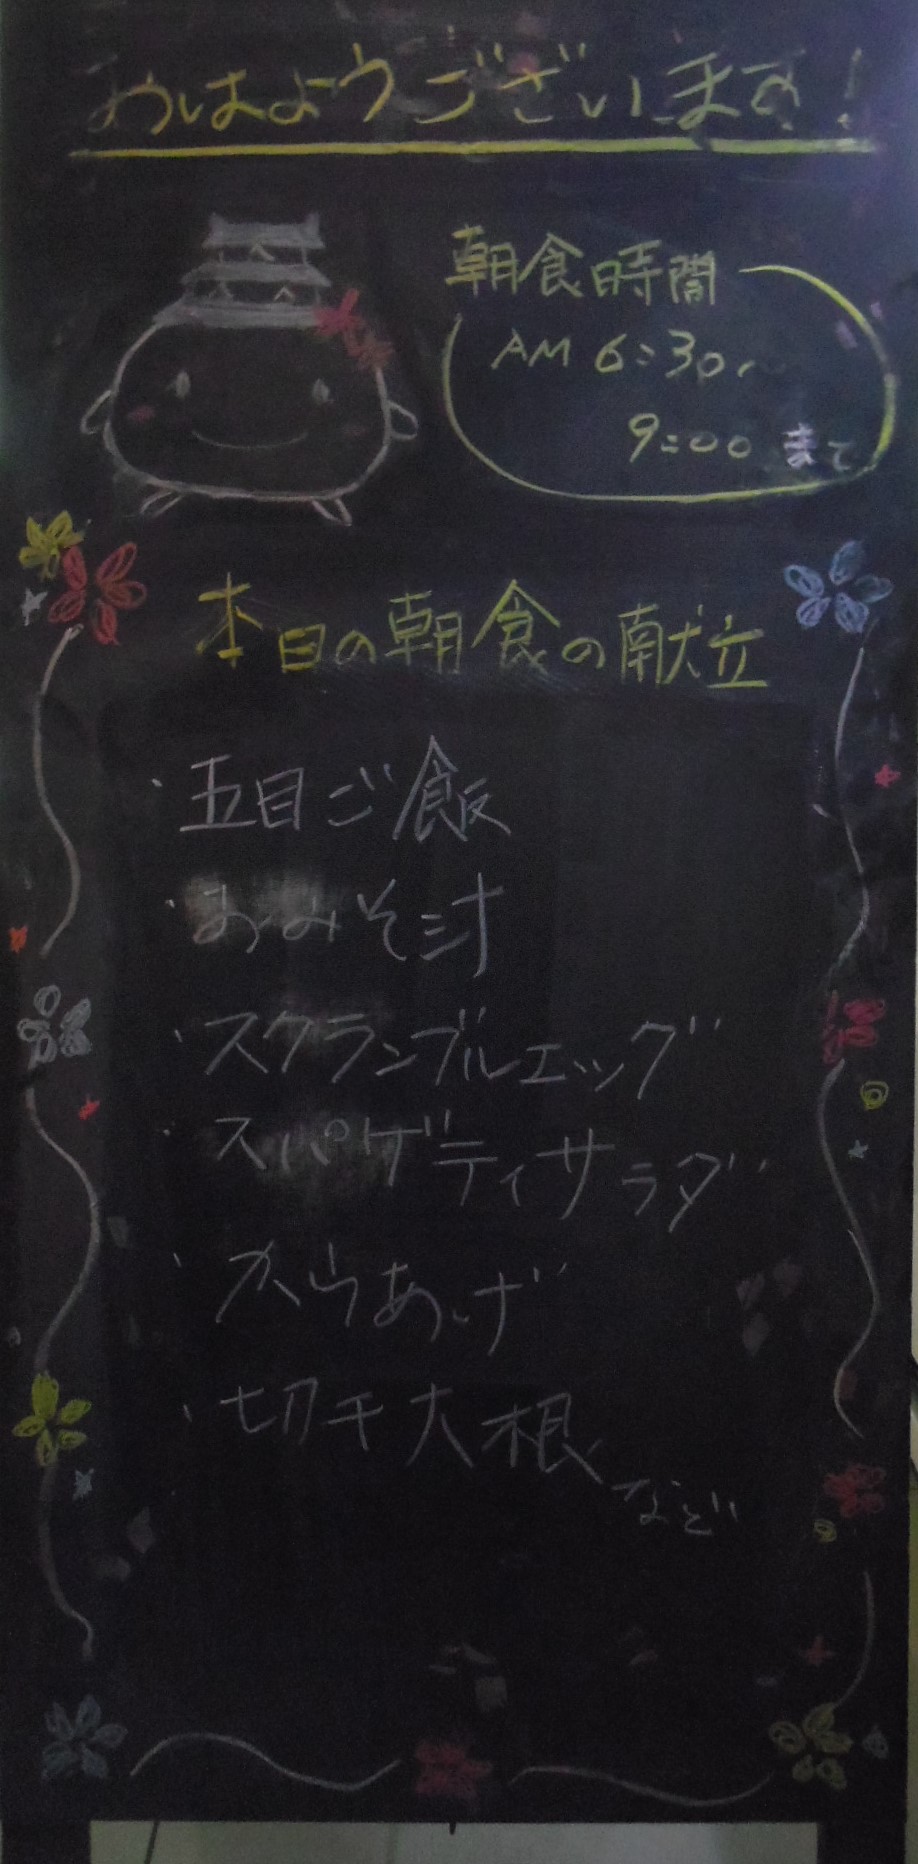 おはようございます!
朝食時間
AM 6:30〜
9:00 まで
本日の朝食の献立
・五目ご飯
・おみそ汁
・スクランブルエッグ
・スパゲティサラダ
・からあげ
・切干大根
など